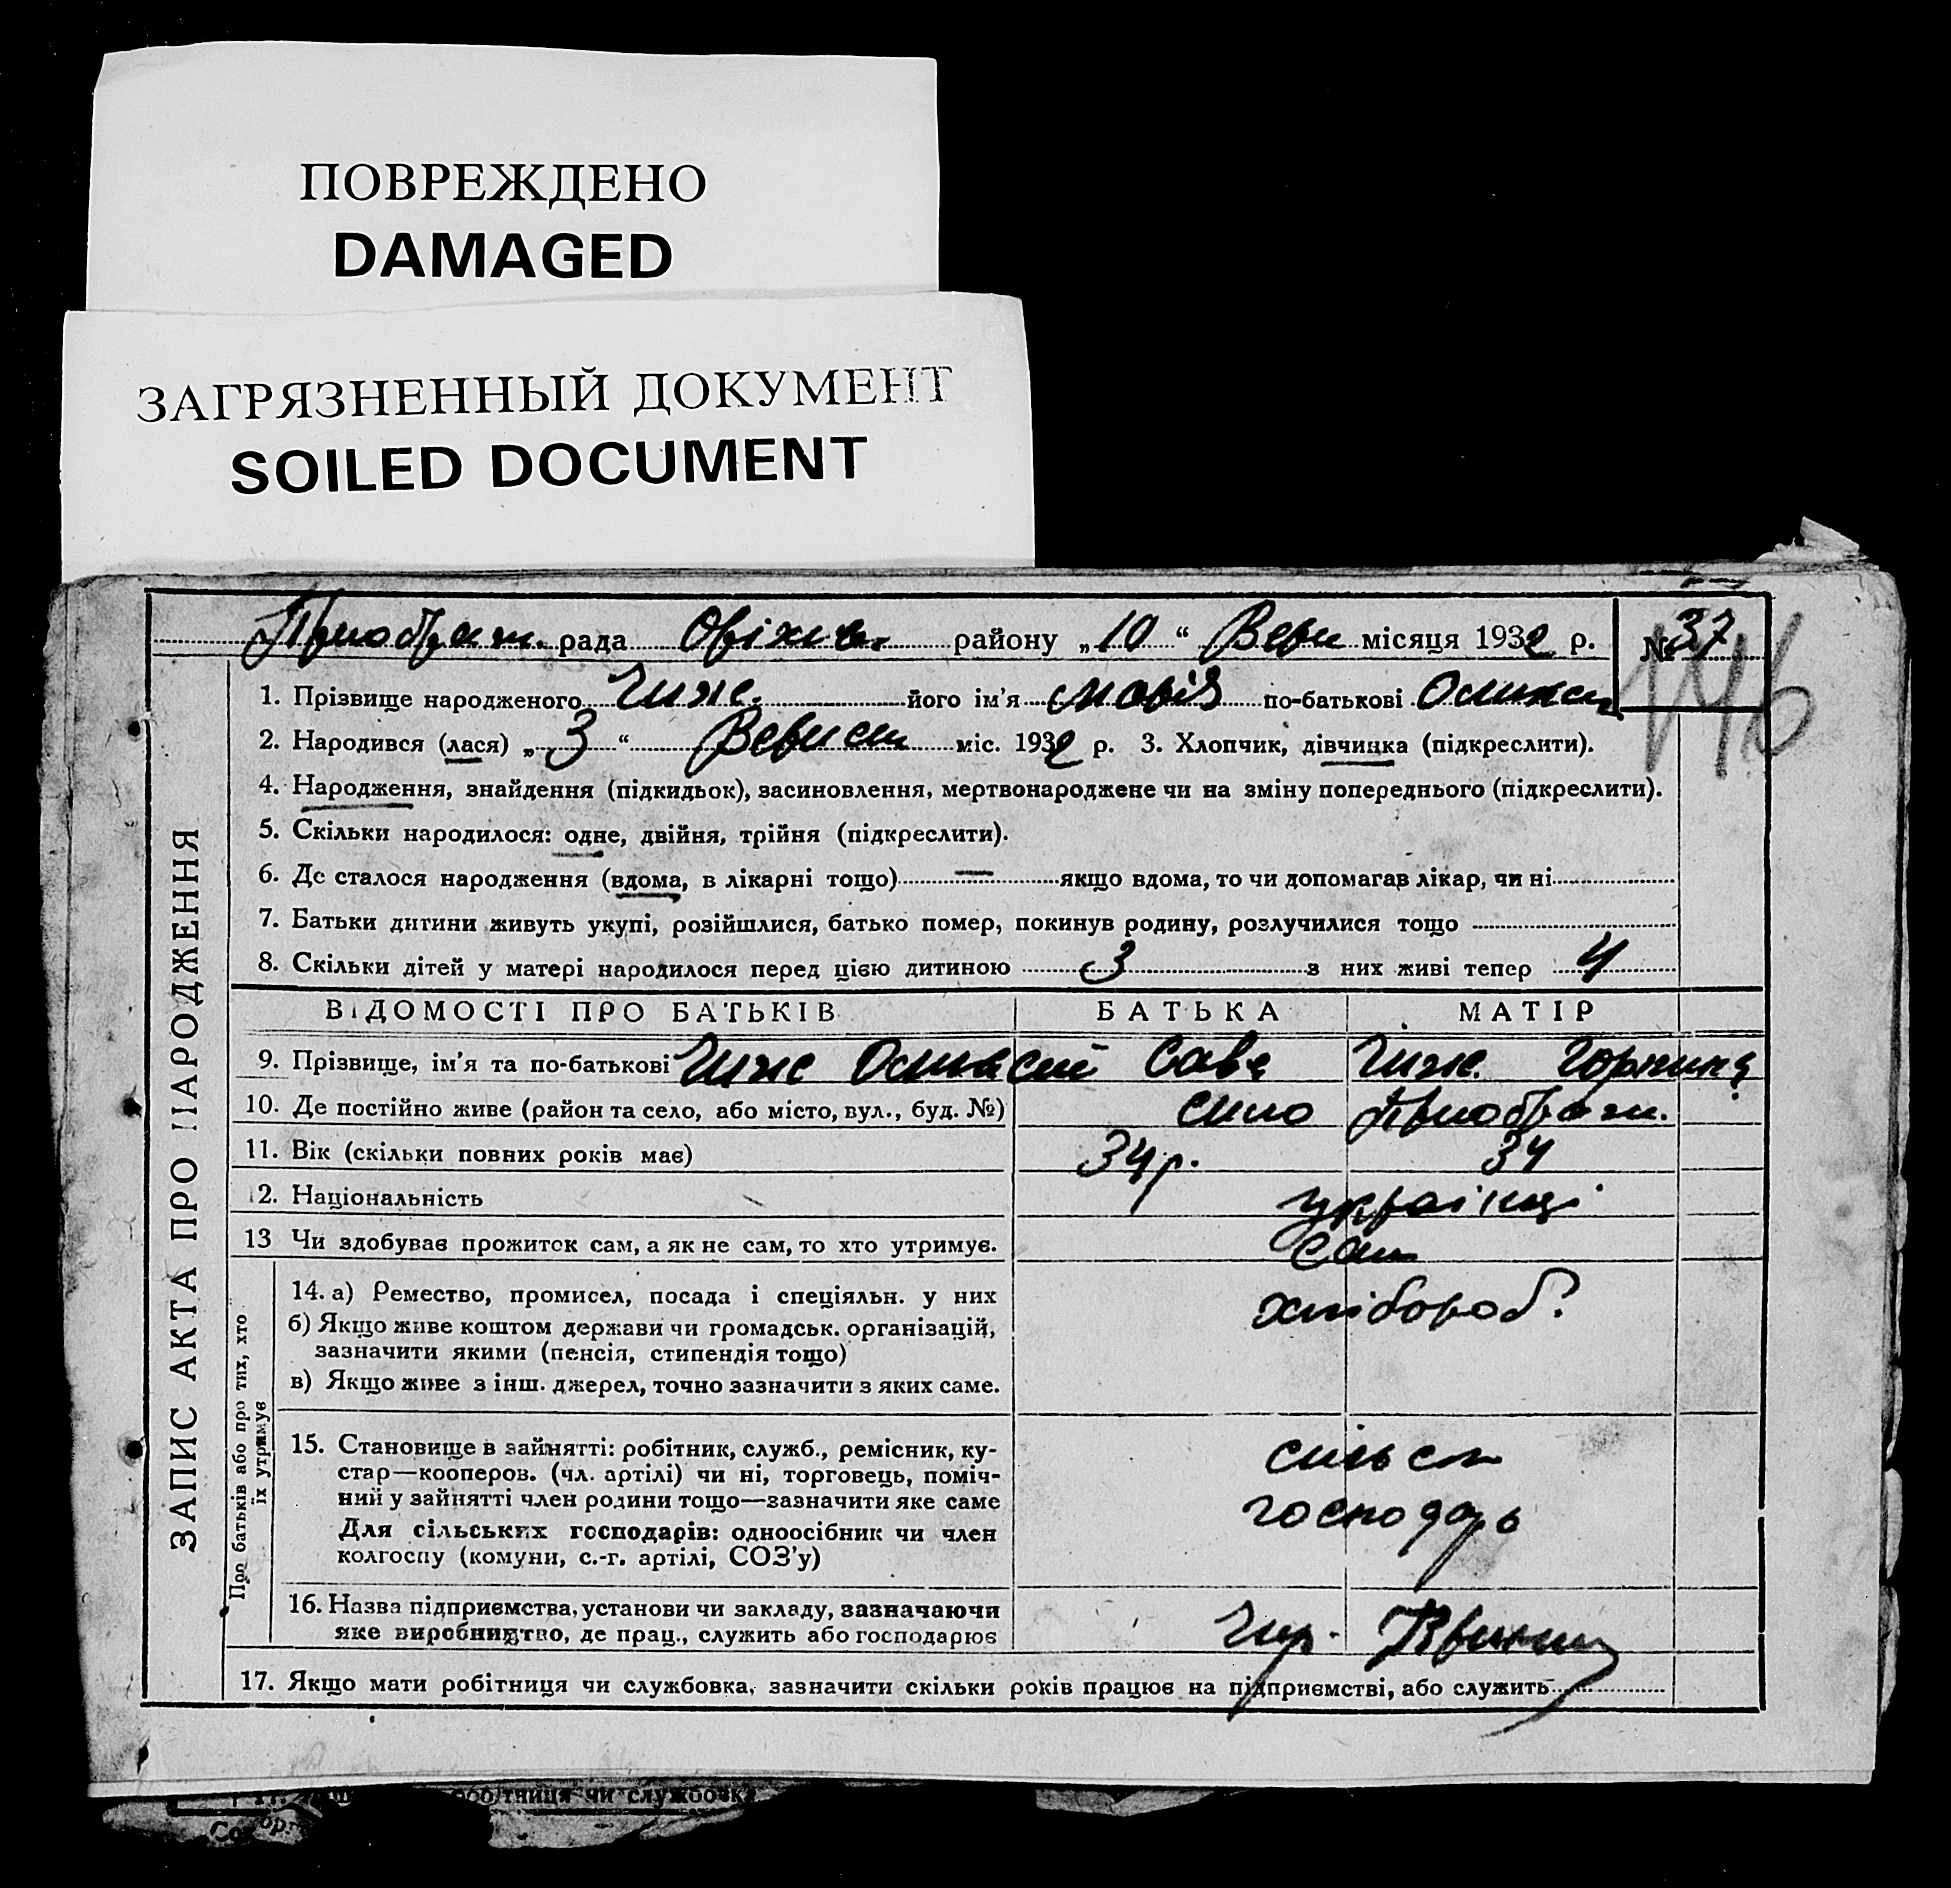 ПОВРЕЖДЕНО
DAMAGED
ЗАГРЯЗНЕННЫЙ ДОКУМЕНТ
SOILED DOCUMENT
рада Оріхів. району „10“ місяця 1932 р. № 37
146
1. Прізвище народженого Чиж. його ім'я Марія по-батькові
2. Народився (лася) „3“ міс. 1932 р. 3. Хлопчик, дівчинка (підкреслити).
4. Народження, знайдення (підкидьок), засиновлення, мертвонароджене чи на зміну попереднього (підкреслити).
5. Скільки народилося: одне, двійня, трійня (підкреслити).
6. Де сталося народження (вдома, в лікарні тощо) — якщо вдома, то чи допомагав лікар, чи ні
7. Батьки дитини живуть укупі, розійшлися, батько помер, покинув родину, розлучилися тощо
8. Скільки дітей у матері народилося перед цією дитиною 3 з них живі тепер 4
ВІДОМОСТІ ПРО БАТЬКІВ БАТЬКА МАТІР
9. Прізвище, ім'я та по-батькові Чиж Сава Чиж
10. Де постійно живе (район та село, або місто, вул., буд. №) село
11. Вік (скільки повних років має) 34 р. 34
12. Національність українці
13 Чи здобуває прожиток сам, а як не сам, то хто утримує. сам
14. а) Ремество, промисел, посада і спеціяльн. у них хлібороб
б) Якщо живе коштом держави чи громадськ. організацій,
зазначити якими (пенсія, стипендія тощо)
в) Якщо живе з інш. джерел, точно зазначити з яких саме.
15. Становище в зайнятті: робітник, служб., ремісник, ку-
стар—кооперов. (чл. артілі) чи ні, торговець, поміч-
ний у зайнятті член родини тощо—зазначити яке саме
Для сільських господарів: одноосібник чи член
колгоспу (комуни, с.-г. артілі, СОЗ'у)
сільск
господарь
16. Назва підприємства, установи чи закладу, зазначаючи
яке виробництво, де прац., служить або господарює
17. Якщо мати робітниця чи службовка, зазначити скільки років працює на підприємстві, або служить
ЗАПИС АКТА ПРО НАРОДЖЕННЯ
Про батьків або про тих, хто
їх утримує
робітниця чи службовка